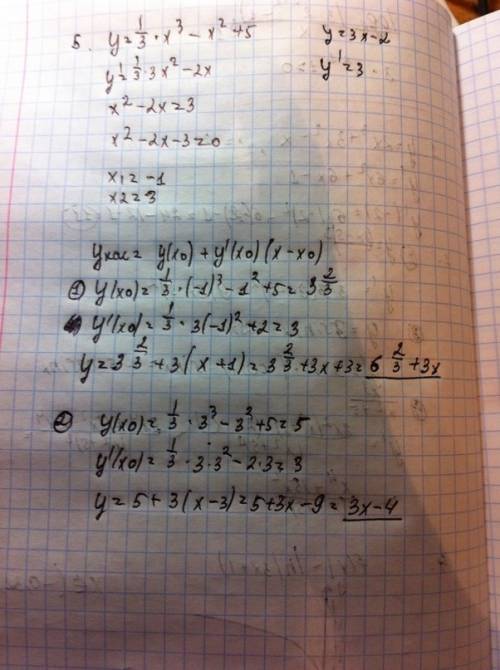 5. y=1/3·x³-x²+5 y=3x-2
y'=1/3·3x²-2x y'=3
x²-2x=3
x²-2x-3=0
x1=-1
x2=3
yкас= y(x0)+y'(x0)(x-x0)
① y(x0)=1/3·(-1)³-1²+5=3 2/3
y'(x0)=1/3·3(-1)²+2=3
y=3 2/3+3(x+1)=3 2/3+3x+3=6 2/3+3x
② y(x0)=1/3·3³-3²+5=5
y'(x0)=1/3·3·3²-2·3=3
y=5+3(x-3)=5+3x-9=3x-4